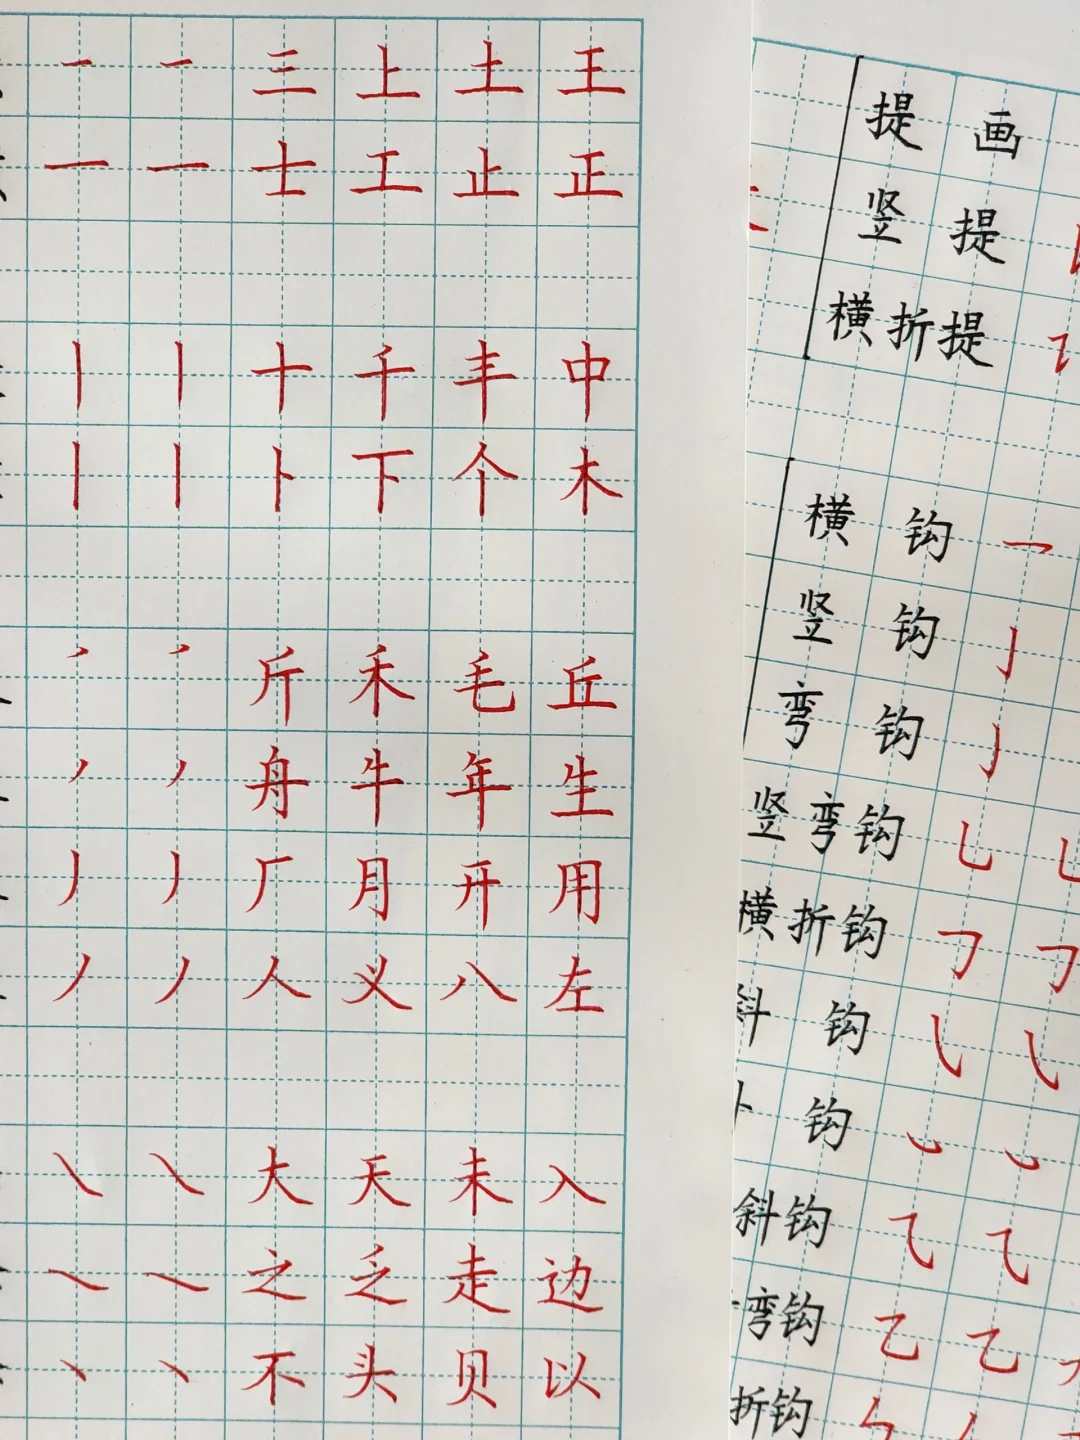 一 一 三 上 土 王
一 一 士 工 止 正
丨 丨 十 千 丰 中
丨 丨 卜 下 个 木
斤 禾 毛 丘
丿 丿 舟 牛 年 生
丿 丿 厂 月 开 用
丿 丿 人 义 八 左
㇏ ㇏ 大 天 未 入
㇏ ㇏ 之 乏 走 边
丶 丶 不 头 贝 以
提画
竖提
横折提
横钩 乛
竖钩 亅
弯钩
竖弯钩 乚
横折钩 𠃌 𠃌
斜钩 ㇂ ㇂
钩
斜钩 ⺄ ⺄
弯钩 乙 乙
折钩